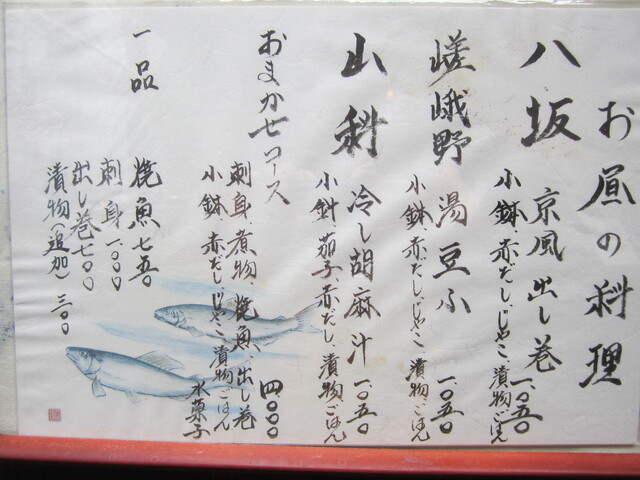 お昼の料理
八坂 京風出し巻 一、〇五〇
小鉢、赤だし、じゃこ、漬物、ごはん
嵯峨野 湯豆ふ 一、〇五〇
小鉢、赤だし、じゃこ、漬物、ごはん
山科 冷し胡麻汁 一、〇五〇
小針、茄子、赤だし、漬物、ごはん
おまかせコース 四、〇〇〇
刺身、煮物、焼魚、出し巻
小鉢、赤だし、じゃこ、漬物、ごはん
水菓子
一品
焼魚 七五〇
刺身 一、〇〇〇
出し巻 七〇〇
漬物(追加) 三〇〇